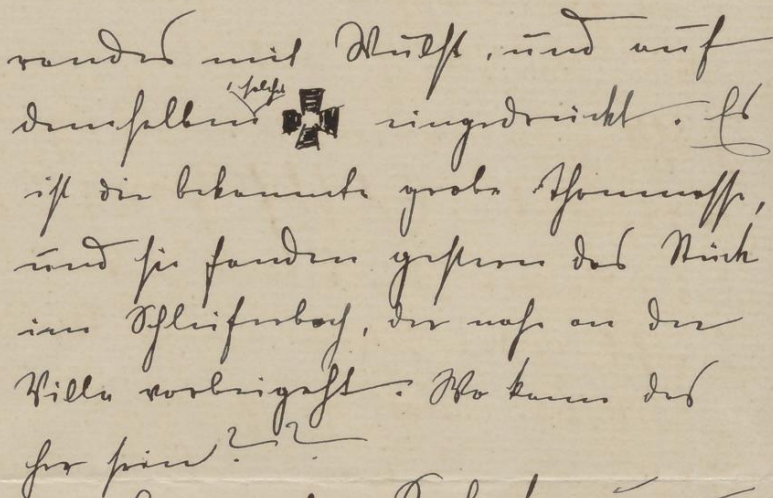 randes mit Wulst, und auf
demselben solches eingedrückt. Es
ist die bekannte grobe Thonmasse,
und sie fanden gestern das Stück
im Schleifenbach, der nahe an der
Villa vorbeigeht. Wo kann das
her sein??